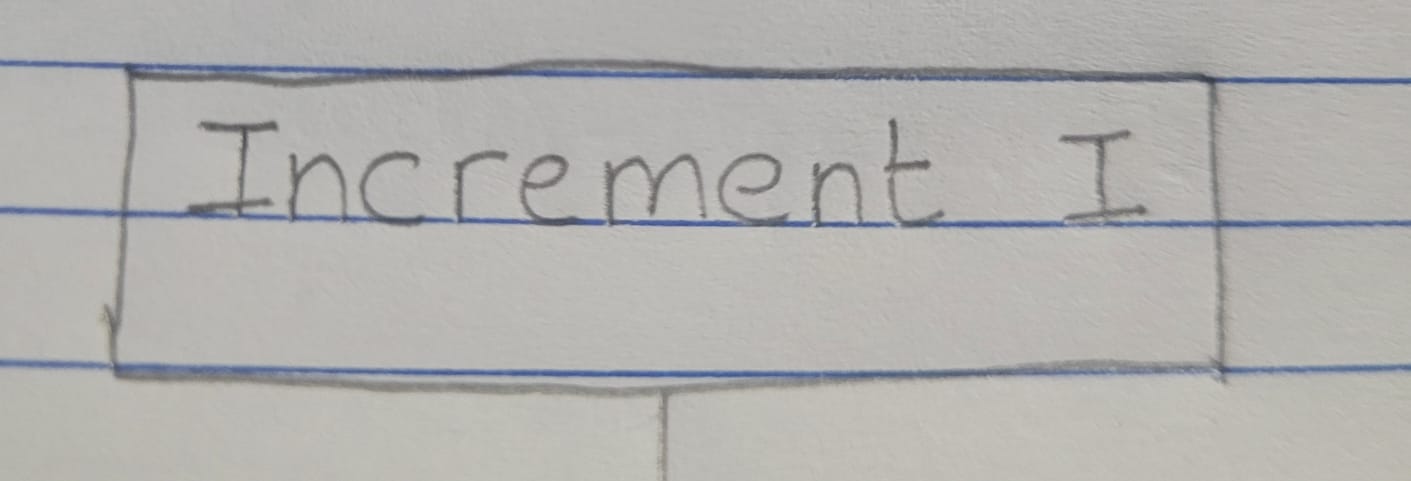 Increment I